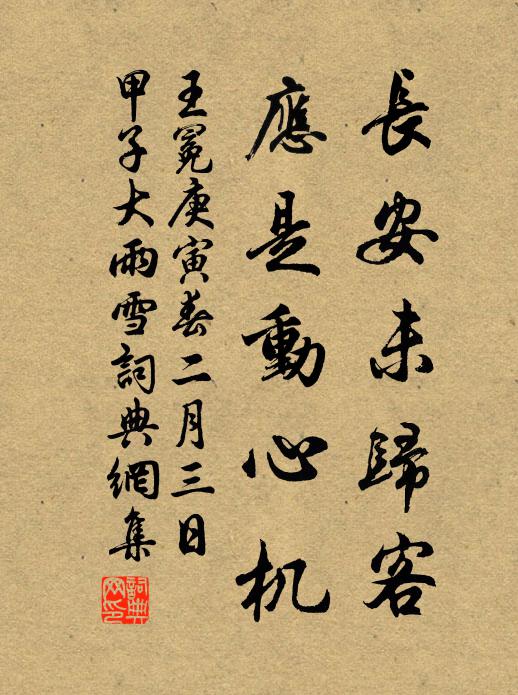 長安未歸客
應是動心机
王冕庚寅春二月三日
甲子大雨雪詞典網集
詞典网印